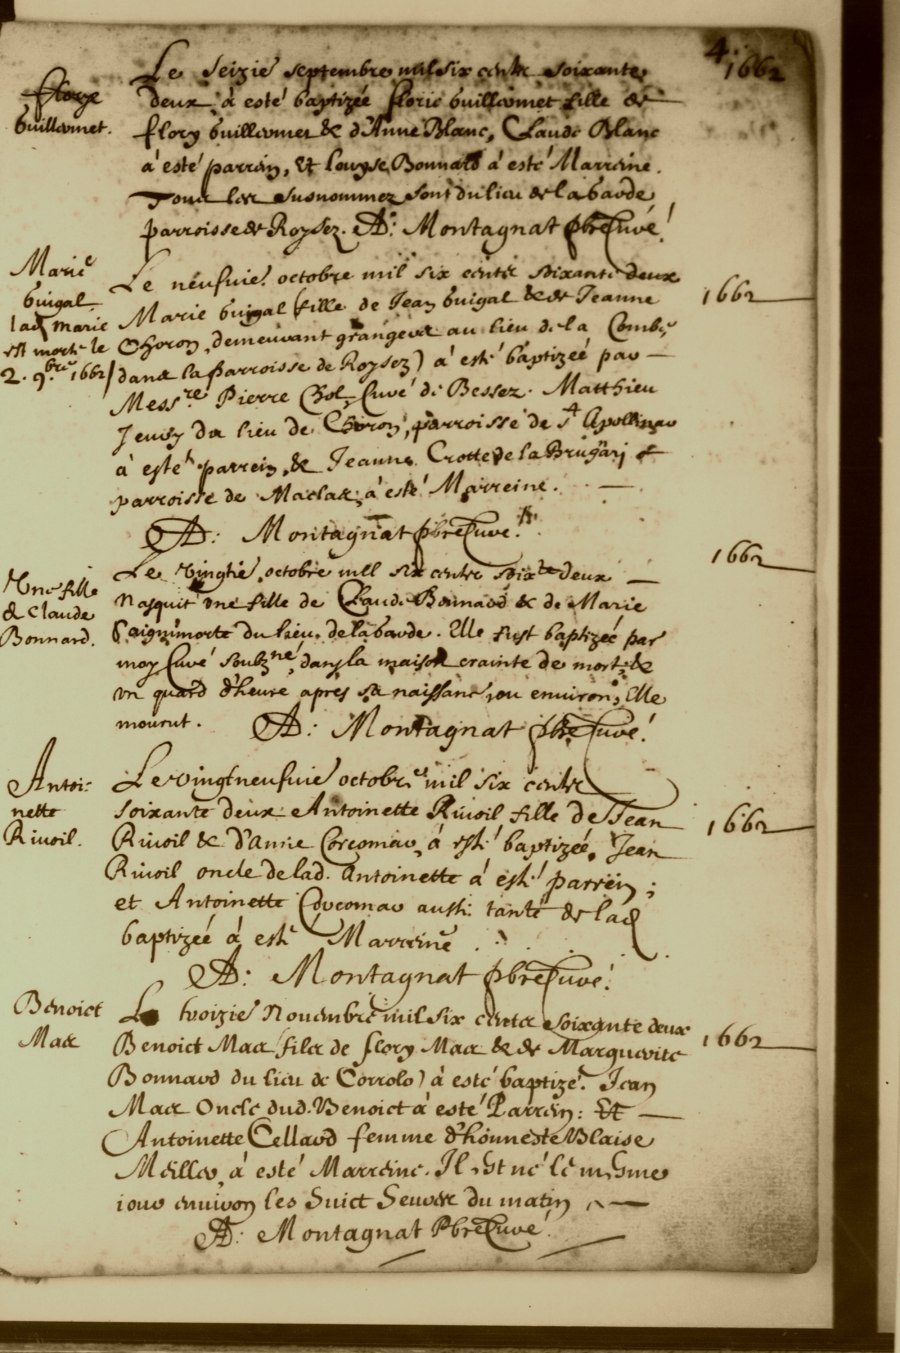 4. 1662
Le seizie septembre mil six centz soixante
deux à esté baptizée florie Guillermet fille de
flory Guillermet & d'Anne Blanc, Claude Blanc
à esté parrein, et louyse Bonnard à esté Marreine.
Tous les susnommez sont du lieu de la barde
parroisse de Roysez. A: Montagnat pbre Curé!
florye
Guillermet.
Le neufuie. octobre mil six centz soixante deux
Marie Guigal (fille de Jean Guigal & de Jeanne
Choron, demeurant grangers au lieu de la Combe
dans la parroisse de Roysez) à esté baptizée par
Mess.re Pierre Chol, Curé de Bessez. Matthieu
du lieu de Choron, parroisse de S.t Apollinar
à esté parrein, & Jeanne Crotte de la
parroisse de Maclas, à esté Marreine.
A: Montagnat pbre Curé.
Marie
Guigal
lad. Marie
est morte le
2. 9.bre 1662
1662
Le vingtie octobre mil six centz soix.te deux
Nasquit une fille de Claude Bonnard & de Marie
du lieu de la barde. Elle fust baptizée par
moy Curé soubz.né, dans la maison crainte de mort, &
un quart d'heure apres sa naissance, ou environ, Elle
mourut. A: Montagnat pbre Curé!
Une fille
de Claude
Bonnard.
1662
Le vingtneufuie octobre mil six centz
soixante deux Antoinette Riuoil fille de Jean
Riuoil & d'Anne Corcomar, à esté baptizée. Jean
Riuoil oncle de lad. Antoinette à esté parrein;
et Antoinette Corcomar aussi tante de lad.
baptizée à esté Marreine.
A: Montagnat pbre Curé!
Antoi-
nette
Riuoil.
1662
Le troizie Nouembre mil six centz soixante deux
Benoict Mas (filz de flory Mas & de Marguerite
Bonnard du lieu de Corrolo) à esté baptizé. Jean
Mas Oncle dud. Benoict à esté Parrein: Et
Antoinette Cellard femme d'honneste Blaise
Meiller, à esté Marreine. Il est né le mesme
iour enuiron les huict heures du matin
A: Montagnat Pbre Curé!
Benoict
Mas
1662